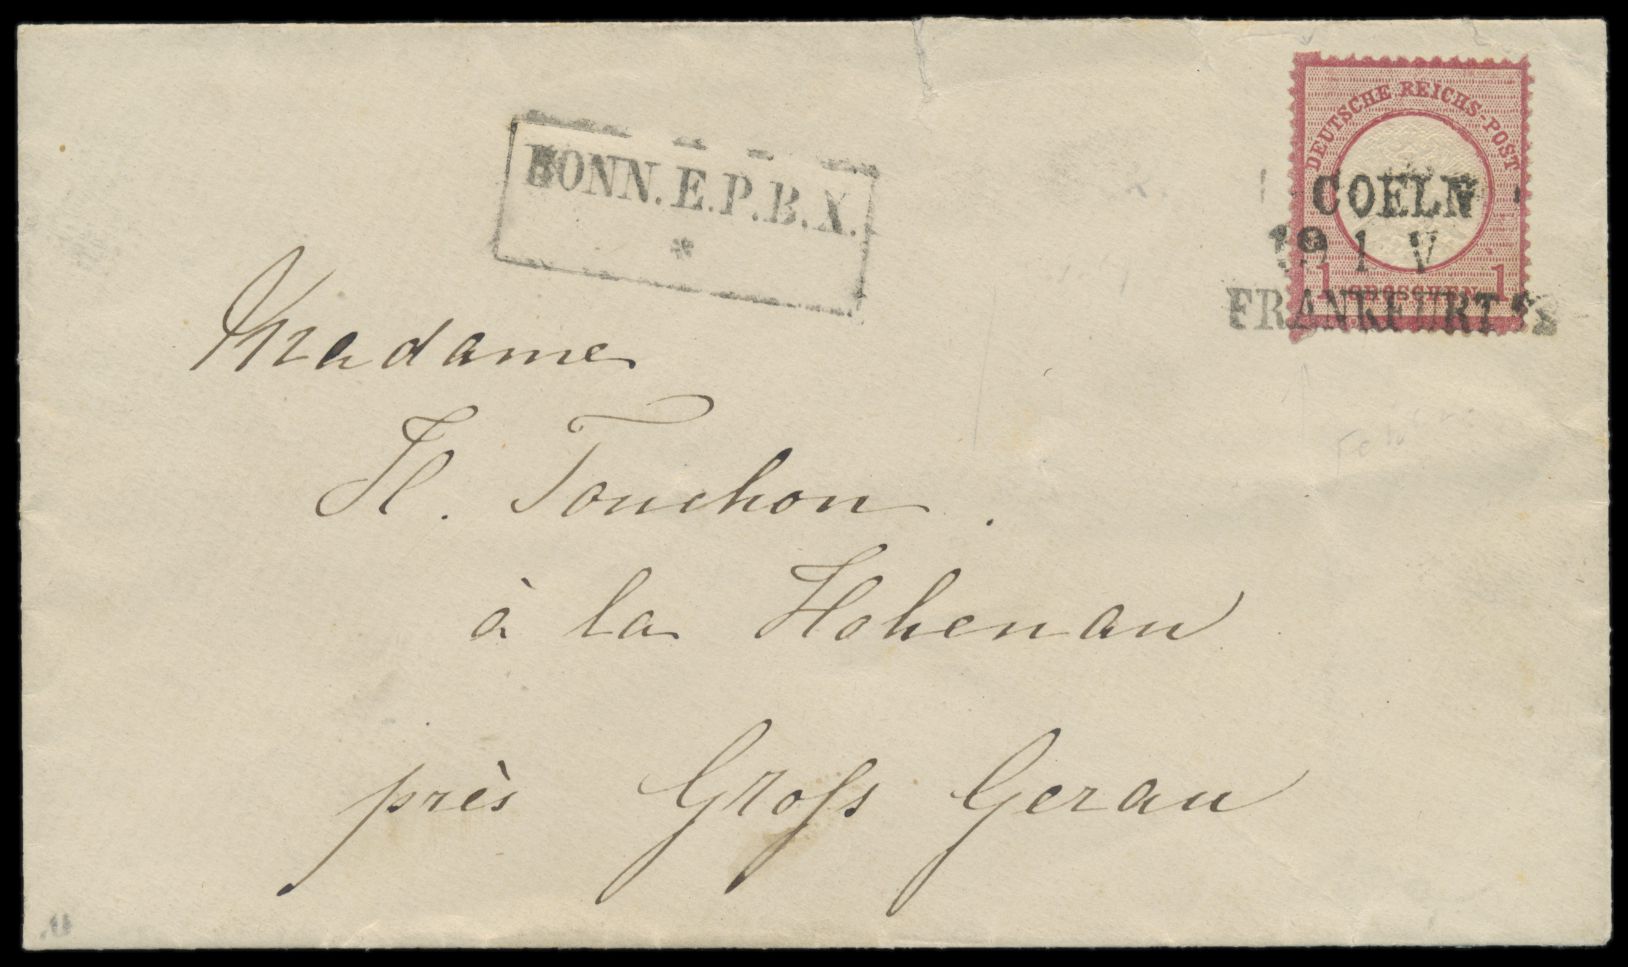 BONN. E. P. B. X.
*
DEUTSCHE REICHS-POST
COELN
19 1 V
1 GROSCHEN 1
FRANKFURT
Madame
H. Touchon.
à la Hohenau
près Groſs Gerau